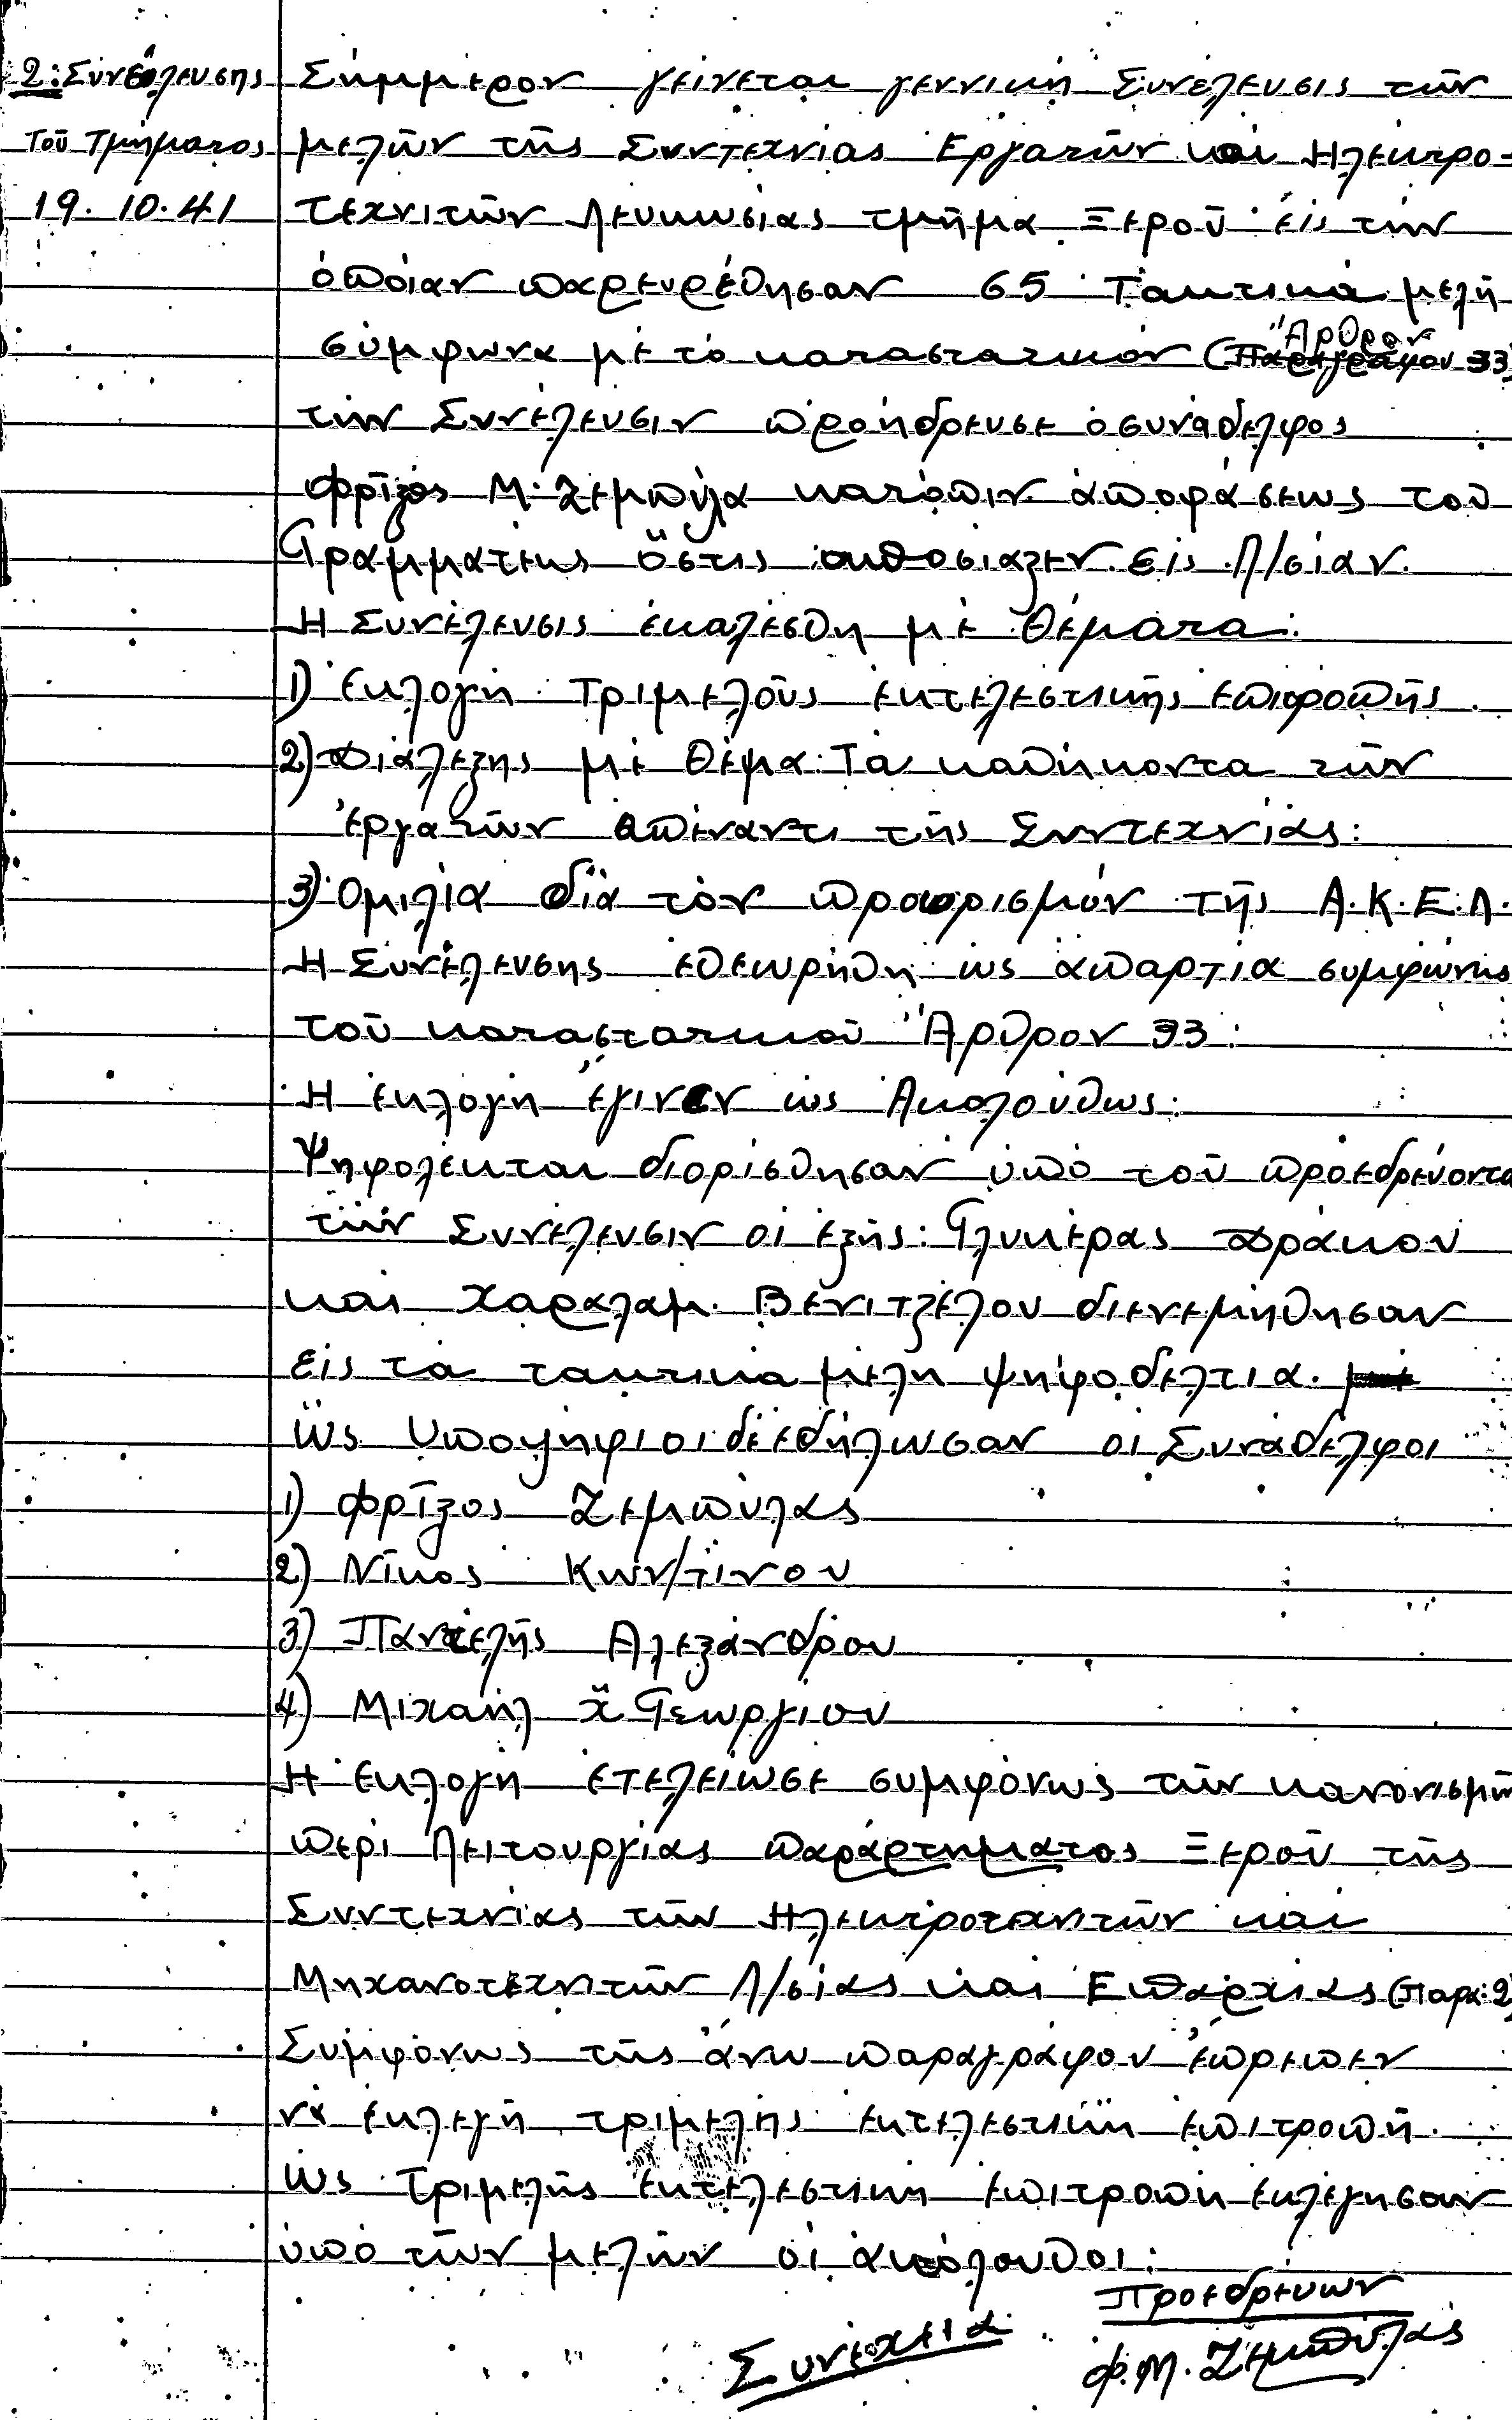 2: Συνεόλευσης
Τοῦ Τμήματος
19. 10. 41
Σήμμερον γείνεται γεννική Συνέλευσις τῶν
μελῶν τῆς Συντεχνίας Εργατῶν και Ηλεκτρο-
τεχνιτῶν Λευκωσίας τμῆμα Ξεροῦ εἰς τήν
ὁποίαν παρευρέθησαν 65 Τακτικά μελή
σύμφωνα μέ τό καταστατικόν (Παραγράφου Ἄρθρον 33)
τήν Συνέλευσιν προήδρευσε ὁ συνάδελφος
Φρῖξος Μ. Ζεμπύλα κατόπιν ἀποφάσεως τοῦ
Γραμματέως ὅστις ἀπθοσιαζεν εἰς Λ/σίαν.
Η Συνέλευσις ἐκαλέσθη μέ θέματα:
1) Εκλογή Τριμελοῦς ἐκτελεστικῆς ἐπιτροπῆς.
2) Διάλεξης μέ θέμα: Τά καθήκοντα τῶν
ἐργατῶν ἀπέναντι τῆς Συντεχνίας:
3) Ομιλία διά τόν προορισμόν τῆς Α.Κ.Ε.Λ.
Η Συνέλευσης ἐθεωρήθη ὡς ἀπαρτία συμφώνως
τοῦ καταστατικοῦ Ἄρθρον 33:
Η ἐκλογή ἔγινεν ὡς Ἀκολούθως:
Ψηφολέκται διορίσθησαν ὑπό τοῦ προεδρεύοντα
τήν Συνέλευσιν οἱ ἑξῆς: Γλυκέρας Δράκου
και Χαραλαμ. Βενιτζέλου διενεμήθησαν
εἰς τά τακτικά μέλη ψηφοδελτια.
Ὡς Υποψηφιοι διεδήλωσαν οἱ Συνάδελφοι
1) Φρῖξος Ζεμπύλας
2) Νῖκος Κων/τίνου
3) Παντελῆς Αλεξάνδρου
4) Μιχαήλ Χ" Γεωργίου
Η ἐκλογή ἐτελείωσε συμφόνως τῶν κανονισμῶν
περί Λειτουργίας παράρτηματος Ξεροῦ τῆς
Συντεχνίας τῶν Ηλεκτροτεχνιτῶν καί
Μηχανοτεχνιτῶν Λ/σίας καί Επαρχίας (Παρα: 2)
Συμφόνως τῆς ἄνω παραγράφου ἔπρεπεν
νά ἐκλεγῆ τριμελής ἐκτελεστική ἐπιτροπή.
Ὡς Τριμελῆς ἐκτελεστική ἐπιτροπή ἐκλέγησαν
ὑπό τῶν μελῶν οἱ ἀκόλουθοι:
Προεδρεύων
Συνέχεια
Φ. Μ. Ζεμπύλας